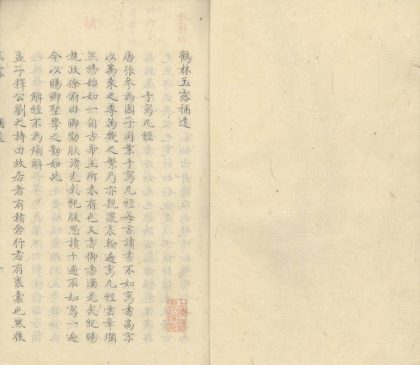 鶴林玉露補遺
手寫九經
唐張參為國子司業手寫九經每言讀書不如寫書高宗
以萬乘之尊萬幾之繁乃亦親灑宸翰遍寫九經雲章爛
然終始如一自古帝王所未有也又嘗御書漢光武紀賜
執政徐俯曰卿勸朕讀光武紀朕思讀十遍不如寫一遍
今以賜卿聖學之勤如此
解經不為煩辭
孟子釋公劉之詩曰故居者有積倉行者有裹囊也然後